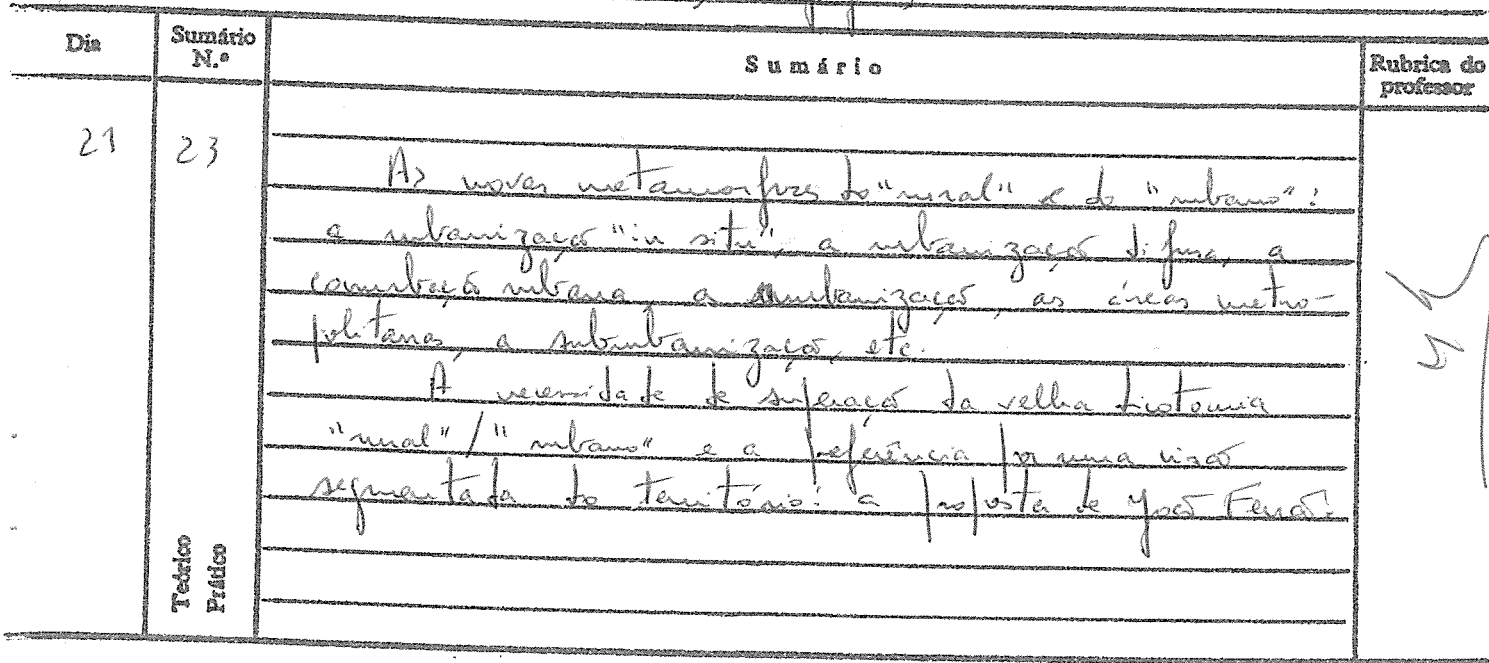 Dia Sumário N.º Sumário Rubrica do professor
21 23
As novas metamorfoses do "rural" e do "urbano":
a urbanização "in situ", a urbanização difusa, a
conurbação urbana, a urbanização, as áreas metro-
politanas, a suburbanização, etc.
A necessidade de superação da velha dicotomia
"rural" / "urbano" e a preferência por uma visão
segmentada do território: a proposta de João Ferrão.
Teórico
Prático